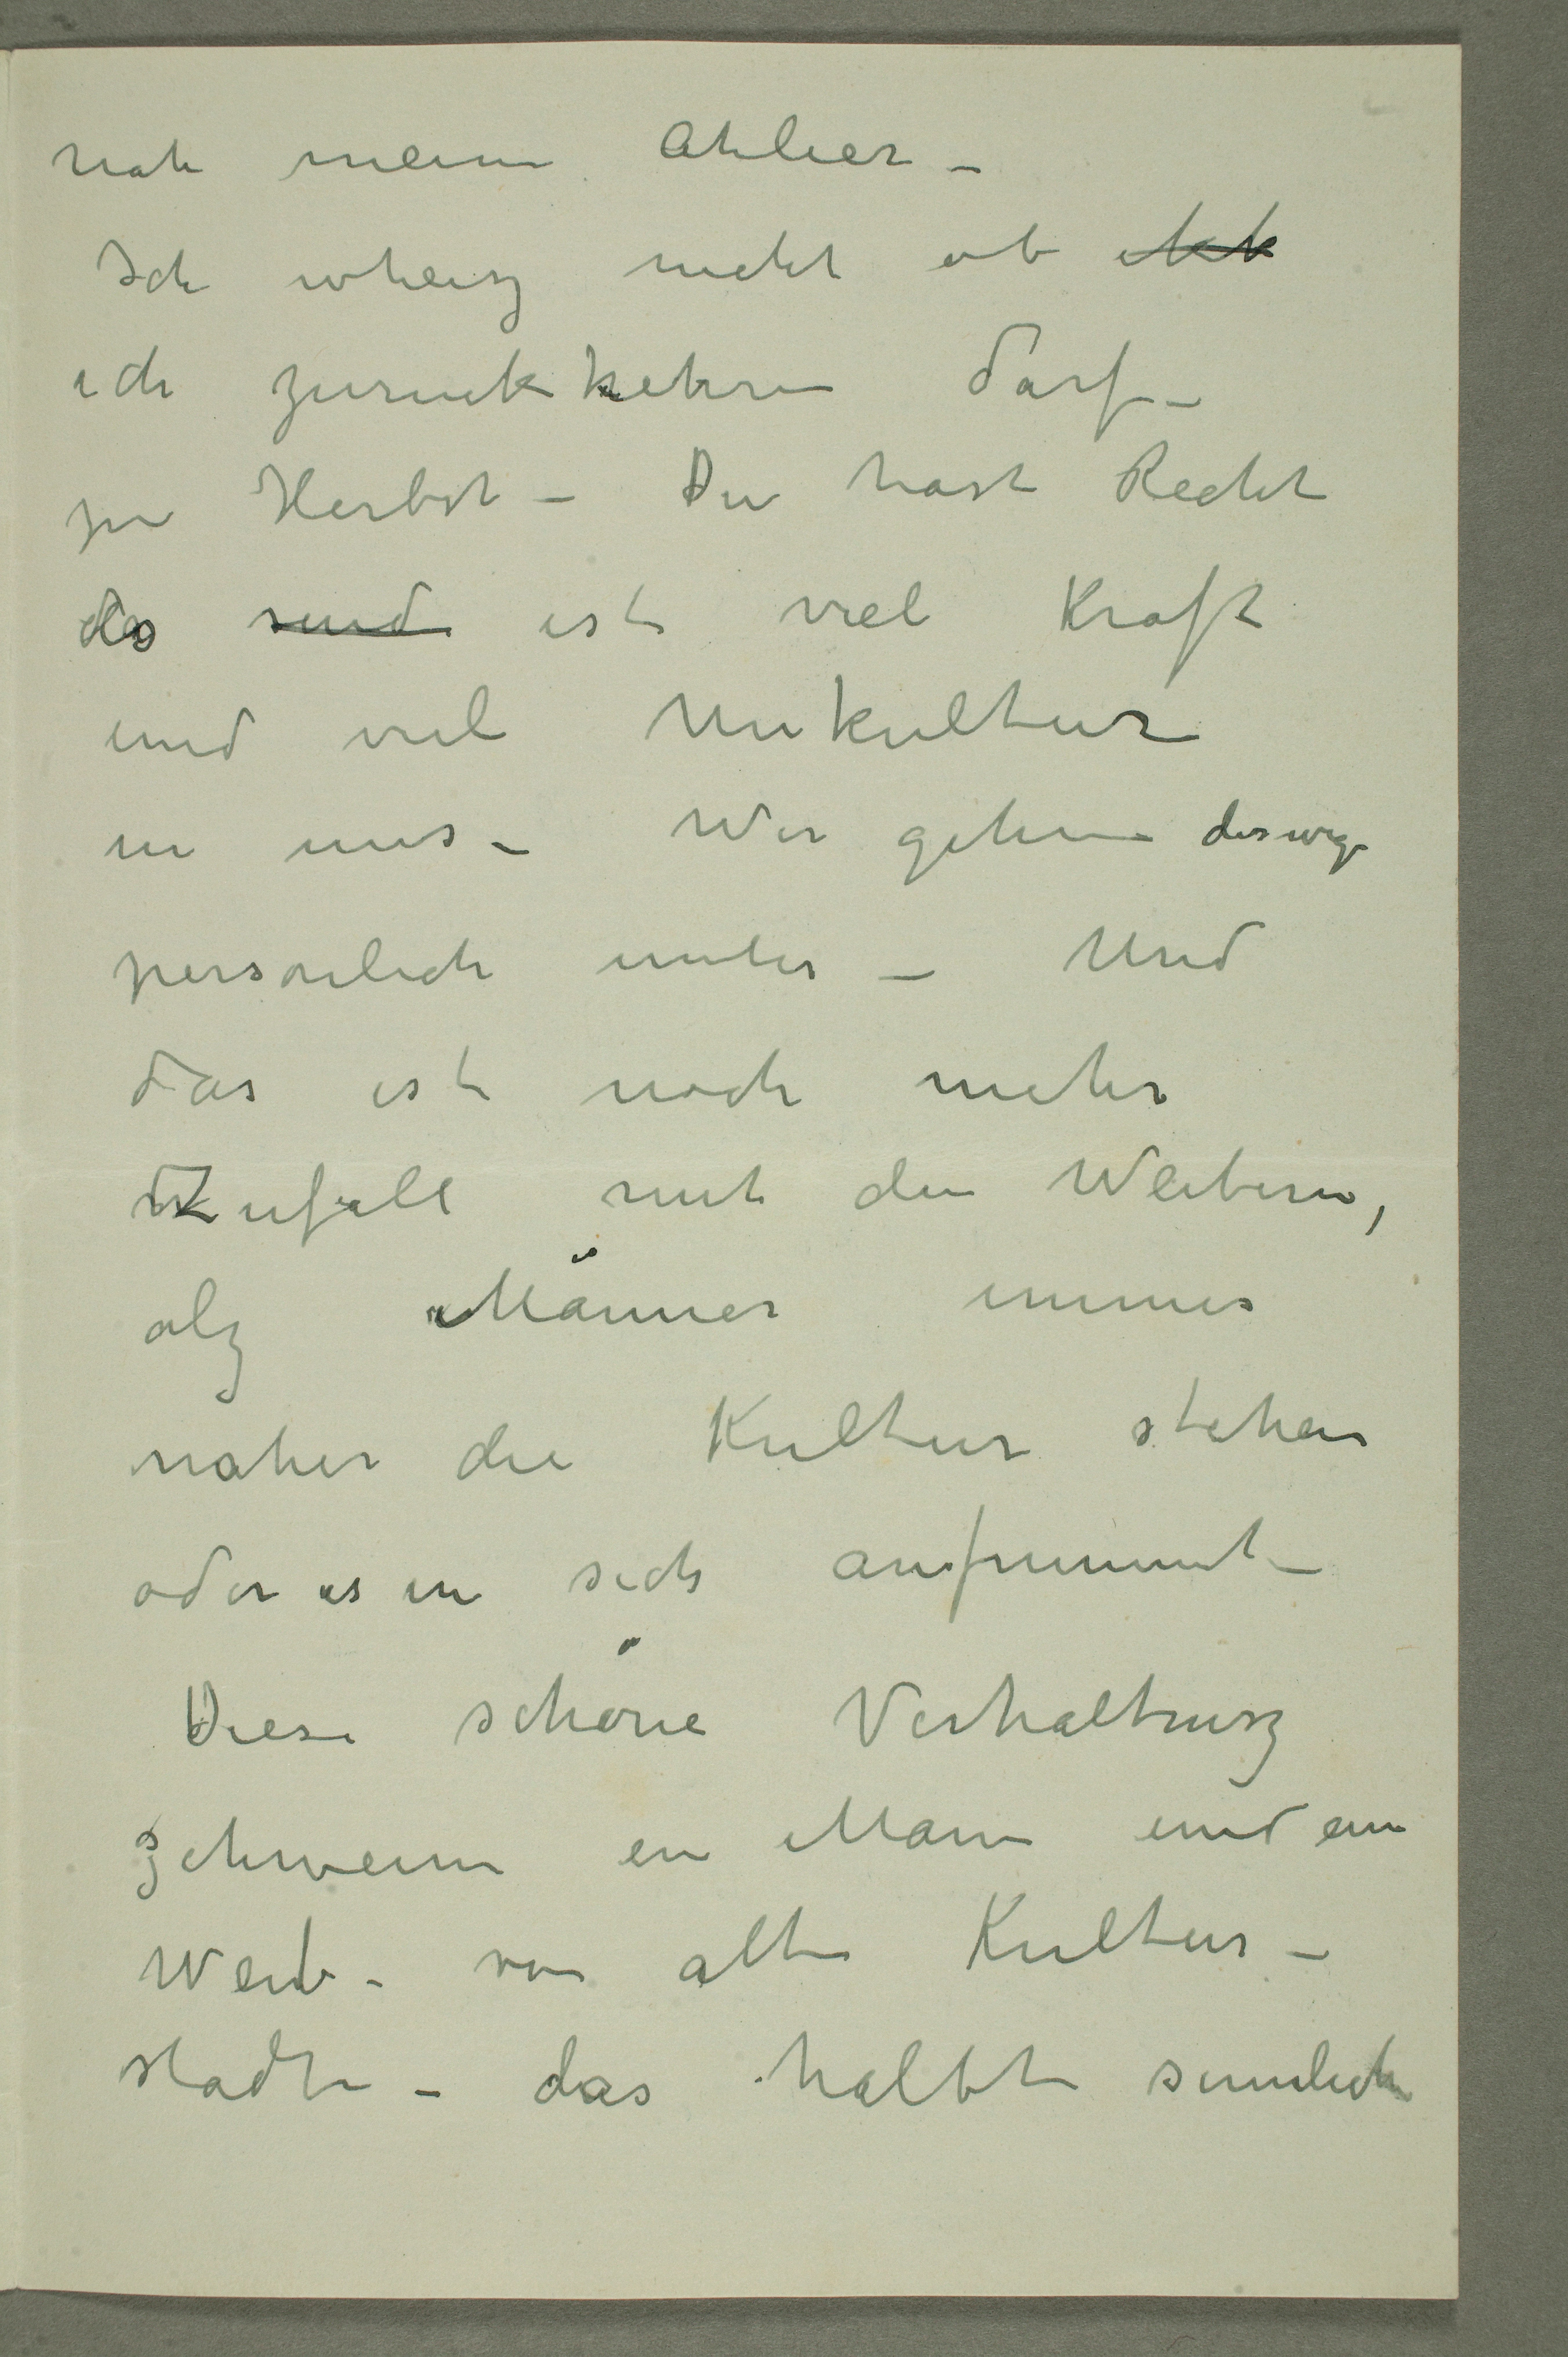 nach meinem Athlier –
Ich wheisz nicht ob
ich zuruckkehren darf –
zu Herbst – Du hast Recht
da ~~sind~~ ist viel Kraft
und viel Unkultur
in uns – Wir gehen deswegen
personlich unter – Und
das ist noch mehr
Zufall mit den Weibern,
alz Männer immer
naher die Kultur stehen
oder es in sich aufnimmt –
Diese schöne Verhaltnisz
zchweinen ein Mann und ein
Weib – von alten Kultur –
stadt – das halbt sinnlich